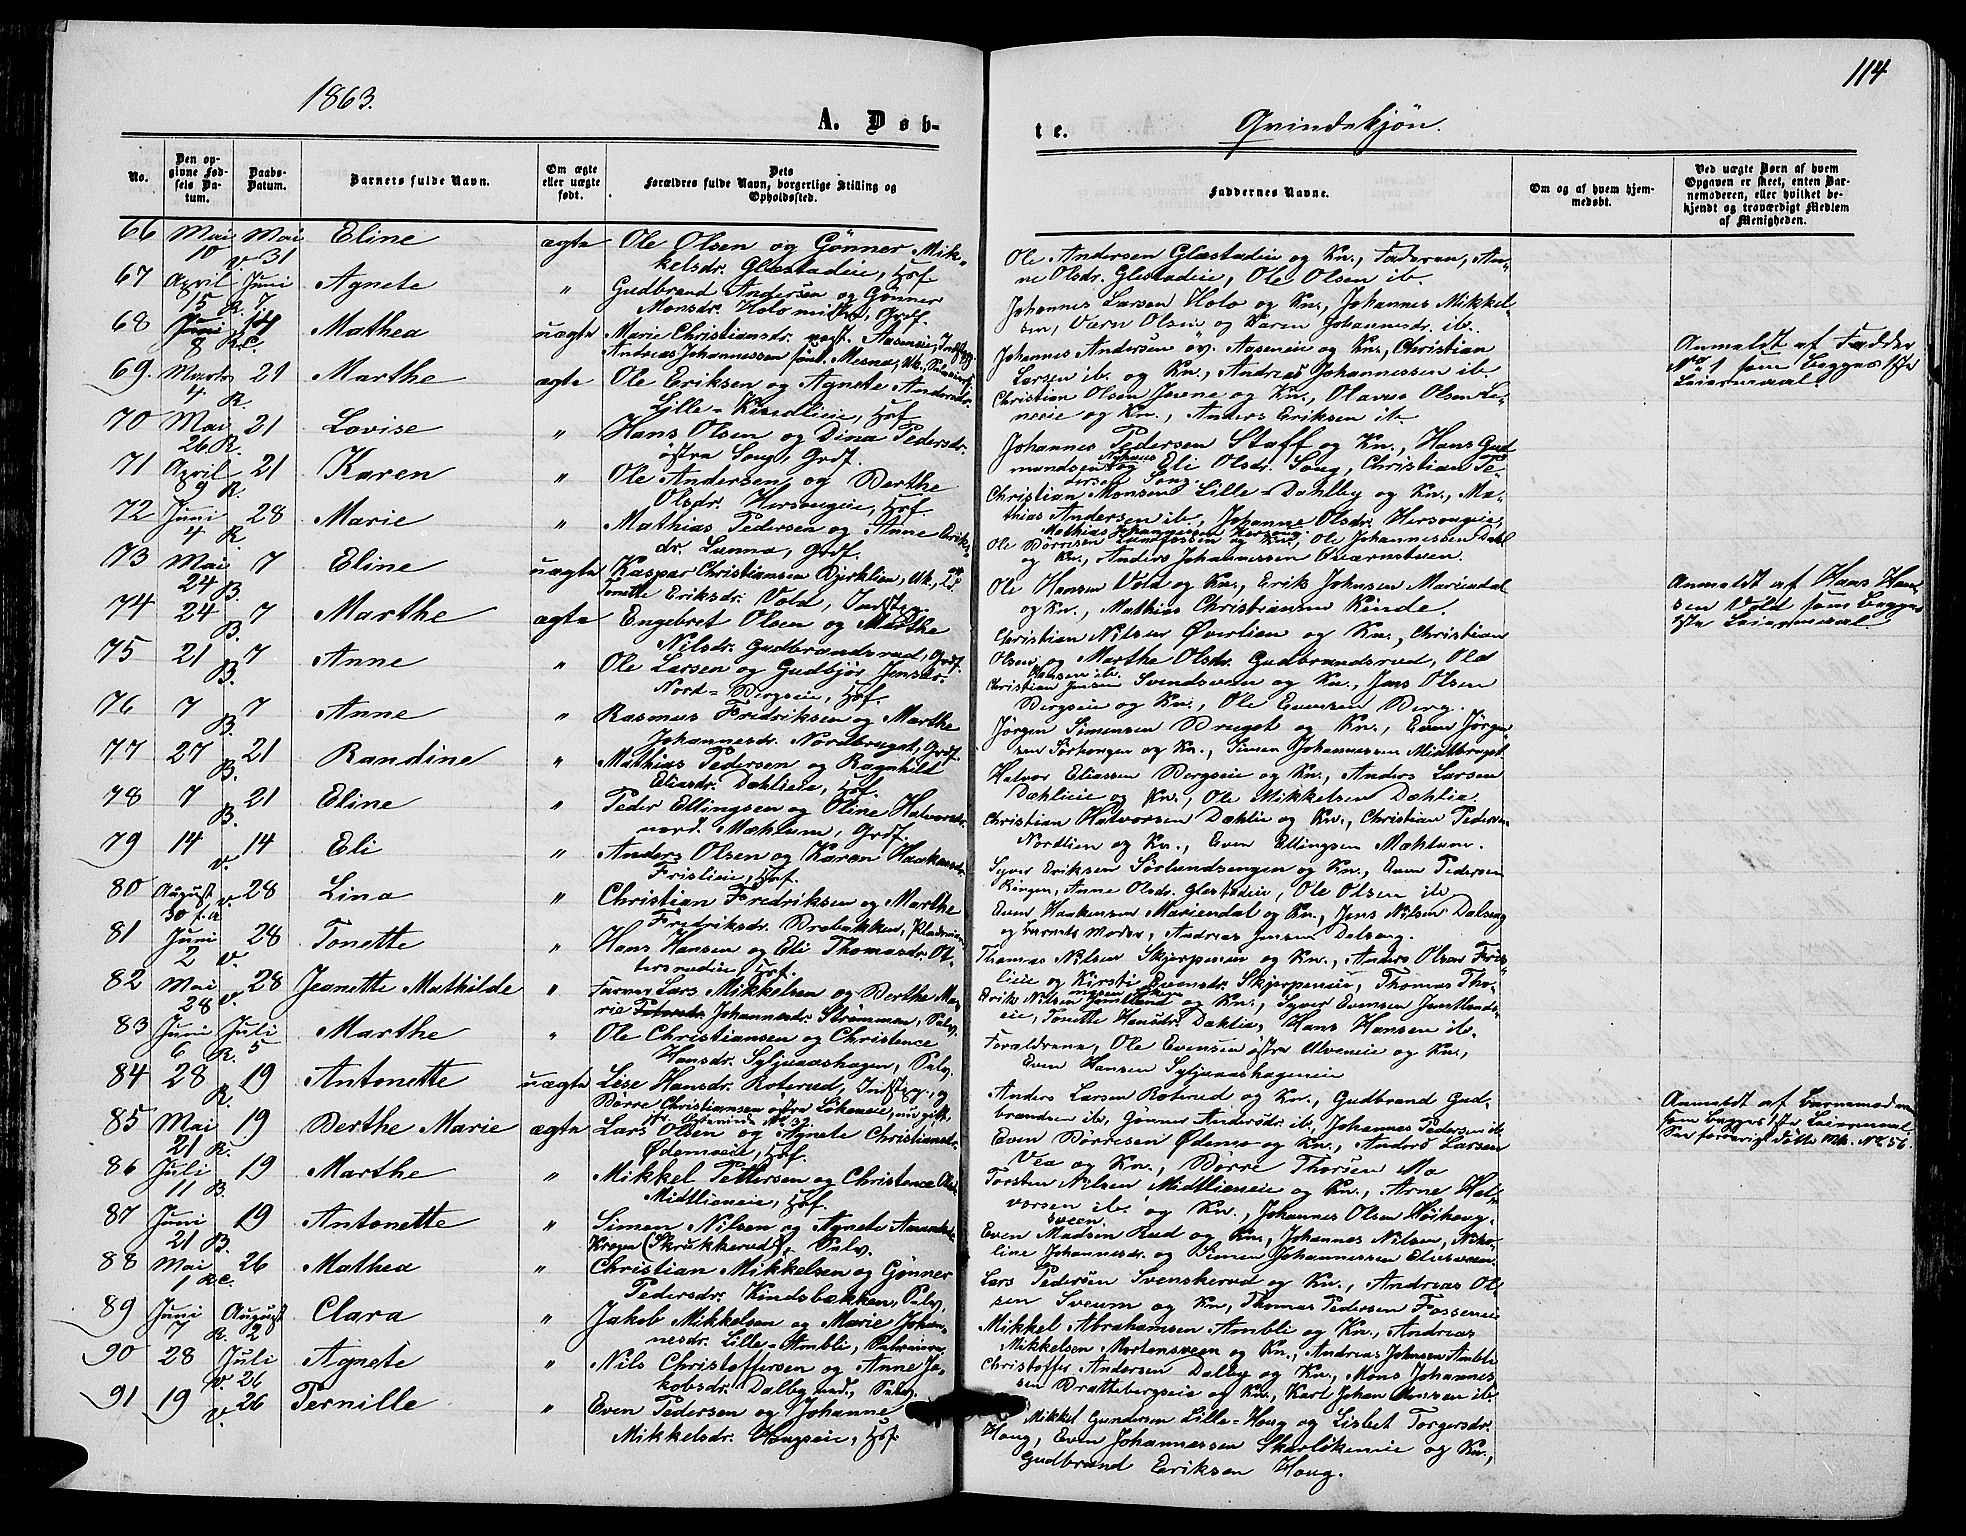 1863.
114
A. Døb-
te.
Qvindekjøn.
No.
Den op-
givne Fød-
sels Da-
tum.
Daabs-
Datum.
Barnets fulde Navn.
Om ægte
eller uægte
født.
Dets
Forældres fulde Navn, borgerlige Stilling og
Opholdssted.
Faddernes Navne.
Om og af hvem hjem-
medøbt.
Ved uægte Børn af hvem
Opgaven er skeet, enten Bar-
nemoderen, eller hvilket be-
kjendt og troværdigt Medlem
af Menigheden.
66 Mai 10 Mai v. 31 Eline ægte Ole Olsen og Gønner Mik-
kelsdr. Glæstadeie, Hsf.
Ole Andersen Glæstadeie og Kn., Faderen, An-
ne Olsdr. Glestadeie, Ole Olsen ib.
67 April 15 Juni R. 7 Agnete " Gudbrand Andersen og Gønner
Monsdr. Holo, Grdf.
Johannes Larsen Holo og Kn., Johannes Mikkel-
sen, Olsen og Karen Johannesdr. ib.
68 Juni 8 Mathea uægte Marie Christiansdr. Aaseneie, Indst.
Andreas Johannessen Mesna, Uk.
Johannes Andersen øv. Aaseneie og Kn., Christian
Larsen ib. og Kn., Andreas Johannessen ib.
Anmeldt af Fadder
No 1 som begges 1ste
Leiermaal.
69. Marts 4 21 R. Marthe ægte Ole Eriksen og Agnete Andersdr.
Lille-Kindlieie, Hsf.
Christian Olsen Jevne og Kn., Olaves Olsen Le-
neeie og Kn., Anders Eriksen ib.
70 Mai 26 R. 21 Lovise " Hans Olsen og Dina Pedersdr.
østra Soug, Grdf.
Johannes Pedersen Staff og Kn., Hans Gud-
mundsen Nyhuus og Eli Olsdr. Soug, Christian Pe-
dersen Soug.
71 April 9 R. 21 Karen " Ole Andersen og Berthe
Olsdr. Hersougeie, Hsf.
Christian Monsen Lille-Dahlby og Kn., Ma-
thias Andersen ib., Johanne Olsdr. Hersougeie,
Mathias Johannessen Hersoug.
72 Juni 4 28 R. Marie " Mathias Pedersen og Anne Eriks-
dr. Lunna, Grdf.
Ole Børresen og Kn., Ole Johannessen Dahl
og Kn., Anders Johannessen Qværnsteen.
73 Mai 24 B. 7 Eline uægte Kaspar Christiansen Bjerklien, Uk.,
Tonette Eriksdr. Vold, Indst.
Ole Hansen Vold og Kn., Erik Johnsen Mariendal
og Kn., Mathias Christiansen Kinde.
Anmeldt af Hans Han-
sen Vold som begges
1ste Leiermaal.
74 24 B. 7 Marthe ægte Engebret Olsen og Marthe
Nilsdr. Gudbrandsrud, Grdf.
Christian Nilsen Øverlien og Kn., Christian
Olsen og Marthe Olsdr. Gudbrandsrud, Ole
Hansen ib.
75 21 B. 7 Anne " Ole Larsen og Gudbjør Jensdr.
Nord-Bergseie, Hsf.
Christian Jensen Svendsveen og Kn., Jens Olsen
Bergseie og Kn., Ole Evensen Berg.
76 7 B. 7 Anne " Rasmus Fredriksen og Marthe
Johannesdr. Nordbryat, Grdf.
Jørgen Simensen Bryat og Kn., Even Jørgen-
sen Sørhougen og Kn., Simen Johannessen Midtbryat.
77 27 B. 21 Randine " Mathias Pedersen og Ragnhild
Eliasdr. Dahlieie, Hsf.
Halvor Eliassen Bergseie og Kn., Anders Larsen
Dahlieie og Kn., Ole Mikkelsen Dæhlie.
78 7 B. 21 Eline " Peder Ellingsen og Oline Halvorsdr.
nord. Mæhlum, Grdf.
Christian Halvorsen Dæhlie og Kn., Christian Pedersen
Nordlien og Kn., Even Ellingsen Mæhlum.
79 14 v. 14 Eli " Anders Olsen og Karen Haakensdr.
Frislieie, Hsf.
Syver Eriksen Sørlundsengen og Kn., Even Pedersen
Ringen, Anne Olsdr. Glestadeie, Ole Olsen ib.
80 August 30 f. a. v. 28 Lina " Christian Fredriksen og Marthe
Fredriksdr. Brobakken,
Even Haakensen Mariendal og Kn., Jens Nilsen Dalseg
og Barnets Moder, Andreas Jensen Dalseg.
81 Juni 2 v. 28 Tonette " Hans Hansen og Eli Thomasdr. Ot-
tersrudeie, Hsf.
Thomas Nilsen Skjerpeneie og Kn., Anders Olsen Fris-
lieie og Kirsti Evensdr. Skjerpeneie, Thomas Tho-
82 Mai 28 v. 28 Jeanette Mathilde " Farver Lars Mikkelsen og Berthe Ma-
rie Johannesdr. Strømmen, Selv.
Eriks Nilsen Jemtland og Kn., Syver Evensen Jemtlands-
eie, Tonette Hansdr. Dæhlie, Hans Hansen ib.
83 Juni 6 Juli R. 5 Marthe " Ole Christiansen og Christence
Hansdr. Syljuaashagen, Selv.
Forældrene, Ole Evensen østre Ulveneie og Kn.,
Even Hansen Syljuaashageneie
84 28 R. 19 Antonette uægte Lise Hansdr. Roterud, Indst., og
Børre Christiansen østra Løkeneie, nu gift.
Anders Larsen Roterud og Kn., Gudbrand Gud-
brandsen ib., Gønner Andersdr. ib., Johannes Pedersen ib.
Anmeldt af Barnemoderen
som begges 1ste Leiermaal.
85 Mai 21 R. 19 Berthe Marie ægte Lars Olsen og Agnete Christiansdr.
Ødemoeie, Hsf.
Even Børresen Ødemo og Kn., Anders Larsen
Vea og Kn., Børre Thorsen Mo
86 Juli 11 B. 19 Marthe " Mikkel Pettersen og Christence Olsdr.
Midtlieneie, Hsf.
Torsten Nilsen Midtlieneie og Kn., Arne Hal-
vorsen ib. og Kn., Johannes Olsen Høihoug-
sveen.
87 Juni 21 B. 19 Antonette " Simen Nilsen og Agnete
Krogen (Skrukkerud), Selv.
Even Madsen Rud og Kn., Johannes Nilsen, Niko-
line Johannesdr. og Simen Johannessen Eliesveen.
88 Mai 1 26 Mathea " Christian Mikkelsen og Gønner
Pedersdr. Kindsbækken, Selv.
Lars Pedersen Svenskerud og Kn., Andreas Ol-
sen Sveum og Kn., Thomas Pedersen Fosseneie
89 Juni 7 August R. 2 Clara " Jakob Mikkelsen og Marie Johan-
nesdr. Lille-Ambli,
Mikkel Abrahamsen Ambli og Kn., Andreas
Mikkelsen Mortensveen og Kn., Andreas Johnsen Ambli
90 28 Juli v. 26 Agnete " Nils Christoffersen og Anne Ja-
kobsdr. Dalby ned., Selv.
Christoffer Andersen Dalby og Kn., Mons Johannes-
sen Brattebergseie og Kn., Karl Johan Monsen ib.
91 19 v. 26 Pernille " Even Pedersen og Johanne
Mikkelsdr. Hougseie, Hsf.
Mikkel Gundersen Lille-Houg og Lisbet Torgersdr.
Houg, Even Johannessen Skarløkeneie og Kn.,
Gudbrand Eriksen Houg.